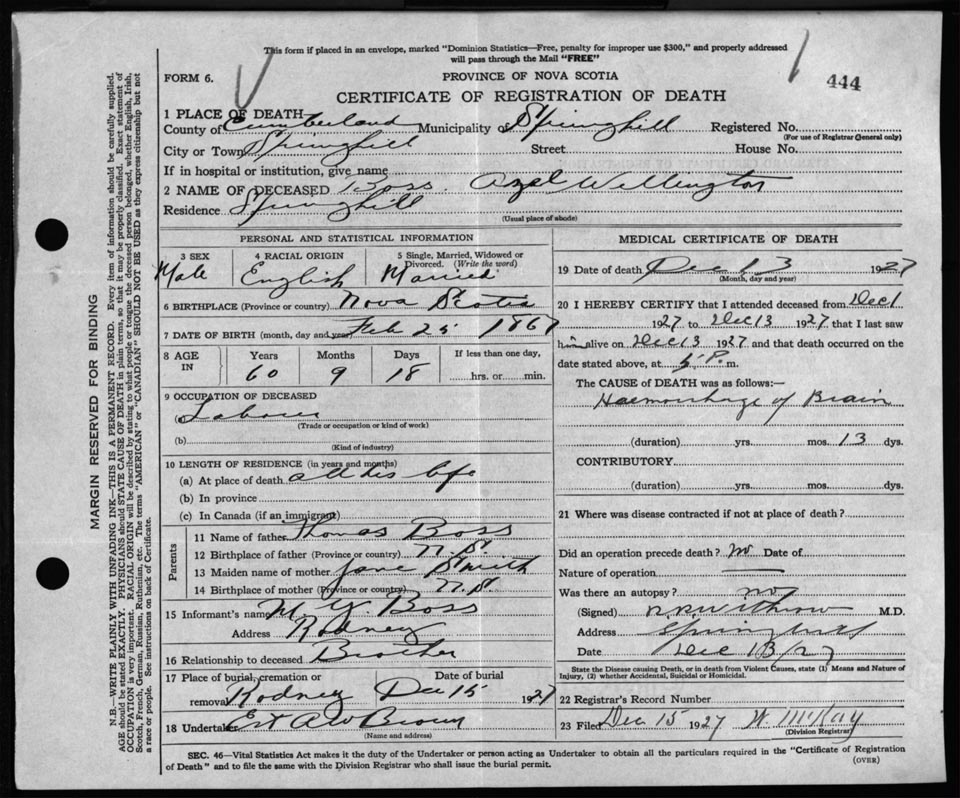 This form if placed in an envelope, marked "Dominion Statistics—Free, penalty for improper use $300," and properly addressed
will pass through the Mail "FREE"
FORM 6.
PROVINCE OF NOVA SCOTIA
444
CERTIFICATE OF REGISTRATION OF DEATH
1 PLACE OF DEATH—
County of Cumberland Municipality of Springhill Registered No.
(For use of Registrar General only)
City or Town Springhill Street House No.
If in hospital or institution, give name
2 NAME OF DECEASED Boss. Azel Wellington
Residence Springhill
(Usual place of abode)
PERSONAL AND STATISTICAL INFORMATION
3 SEX 4 RACIAL ORIGIN 5 Single, Married, Widowed or
Divorced. (Write the word)
Male English Married
6 BIRTHPLACE (Province or country) Nova Scotia
7 DATE OF BIRTH (month, day and year) Feb 25 1867
8 AGE IN Years Months Days If less than one day,
60 9 18 hrs. or min.
9 OCCUPATION OF DECEASED
(a) Laborer
(Trade or occupation or kind of work)
(b)
(Kind of industry)
10 LENGTH OF RESIDENCE (in years and months)
(a) At place of death all his life
(b) In province
(c) In Canada (if an immigrant)
Parents
11 Name of father Thomas Boss
12 Birthplace of father (Province or country) N.S.
13 Maiden name of mother Jane Smith
14 Birthplace of mother (Province or country) N.S.
15 Informant's name M. Y. Boss
Address Rodney
16 Relationship to deceased Brother
17 Place of burial, cremation or Date of burial
removal Rodney Dec 15 1927
18 Undertaker Est A W Brown
(Name and address)
MEDICAL CERTIFICATE OF DEATH
19 Date of death Dec 13 1927
(Month, day and year)
20 I HEREBY CERTIFY that I attended deceased from Dec 1
1927 to Dec 13 1927 that I last saw
him alive on Dec 13 1927 and that death occurred on the
date stated above, at 5 P. m.
The CAUSE OF DEATH was as follows:—
Haemorrhage of Brain
(duration) yrs. mos. 13 dys.
CONTRIBUTORY
(duration) yrs. mos. dys.
21 Where was disease contracted if not at place of death?
Did an operation precede death? no Date of
Nature of operation
Was there an autopsy? no
(Signed) Withrow M.D.
Address Springhill
Date Dec 13/27
State the Disease causing Death, or in death from Violent Causes, state (1) Means and Nature of
Injury, (2) whether Accidental, Suicidal or Homicidal.
22 Registrar's Record Number
23 Filed Dec 15 1927 W. McKay
(Division Registrar)
SEC. 46—Vital Statistics Act makes it the duty of the Undertaker or person acting as Undertaker to obtain all the particulars required in the "Certificate of Registration
of Death" and to file the same with the Division Registrar who shall issue the burial permit.
(OVER)
MARGIN RESERVED FOR BINDING
N.B.—WRITE PLAINLY WITH UNFADING INK—THIS IS A PERMANENT RECORD. Every item of information should be carefully supplied.
AGE should be stated EXACTLY. PHYSICIANS should STATE CAUSE OF DEATH in plain terms, so that it may be properly classified. Exact statement of
OCCUPATION is very important. RACIAL ORIGIN will be described by stating to what people or tongue the deceased person belonged, whether English, Irish,
Scotch, French, German, Russian, Ruthenian, etc. The terms "AMERICAN" or "CANADIAN" SHOULD NOT BE USED as they express citizenship but not
a race or people. See instructions on back of Certificate.